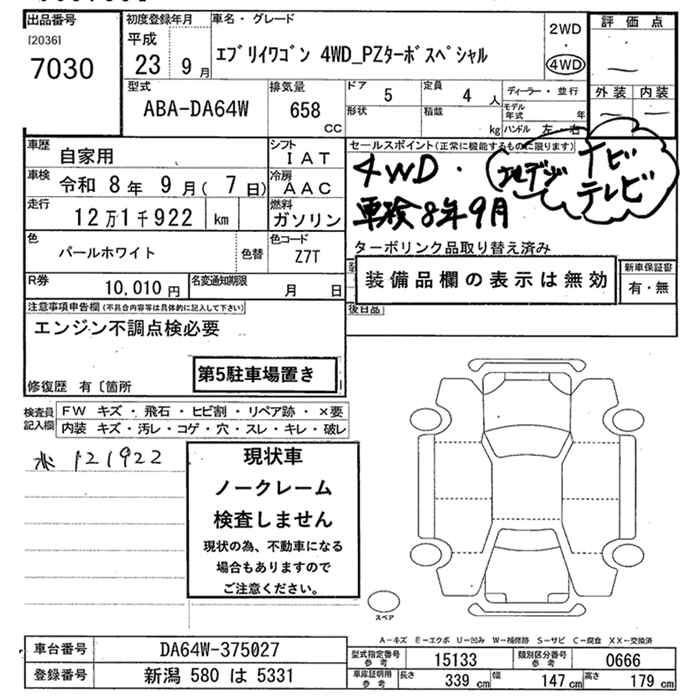 出品番号
[2036]
7030
初度登録年月
平成
23 9 月
車名・グレード
エブリイワゴン 4WD_PZターボスペシャル
2WD
・
4WD
評価点
―
外装 内装
― ―
型式
ABA-DA64W
排気量
658
CC
ドア
5
定員
4 人
形状
積載
kg
ディーラー・並行
モデル年式 年
ハンドル 左・右
車歴
自家用
シフト
IAT
車検
令和 8 年 9 月( 7 日)
冷房
AAC
走行
12 万 1 千 922 km
燃料
ガソリン
色
パールホワイト
色替
色コード
Z7T
R券
10,010 円
名変通知期限
月 日
セールスポイント(正常に機能するものに限ります)
4WD・
地デジ
ナビ
テレビ
車検8年9月
ターボリンク品取り替え済み
装備品欄の表示は無効
新車保証書
有・無
後日品
注意事項申告欄(不具合内容等は具体的に記入して下さい)
エンジン不調点検必要
第5駐車場置き
修復歴 有〔箇所
検査員
記入欄
FW キズ・飛石・ヒビ割・リペア跡・×要
内装 キズ・汚レ・コゲ・穴・スレ・キレ・破レ
121922
現状車
ノークレーム
検査しません
現状の為、不動車になる
場合もありますので
ご注意ください。
スペア
A-キズ E-エクボ U-凹み W-補修跡 S-サビ C-腐食 XX-交換済
車台番号
DA64W-375027
登録番号
新潟 580 は 5331
型式指定番号
参考
15133
類別区分番号
参考
0666
車庫証明用
参考
長さ
339 cm
幅
147 cm
高さ
179 cm